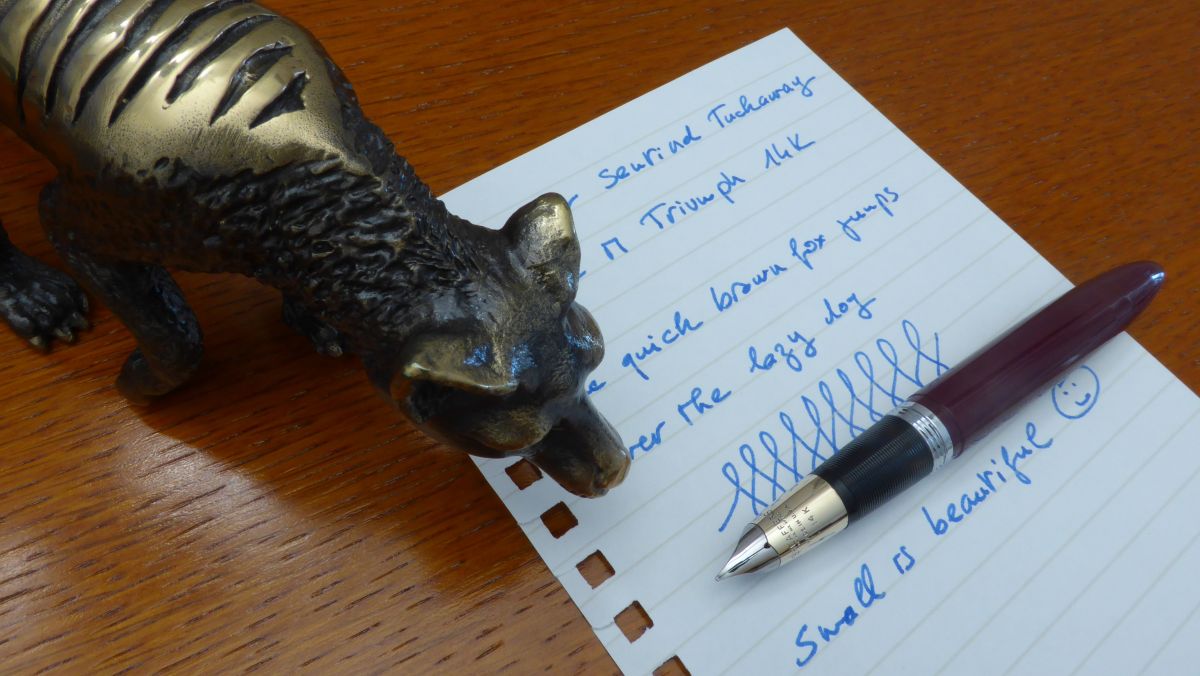 r Sentinel Tuckaway
M Triumph 14K
e quick brown fox jumps
ver the lazy dog
Small is beautiful ☺
14K